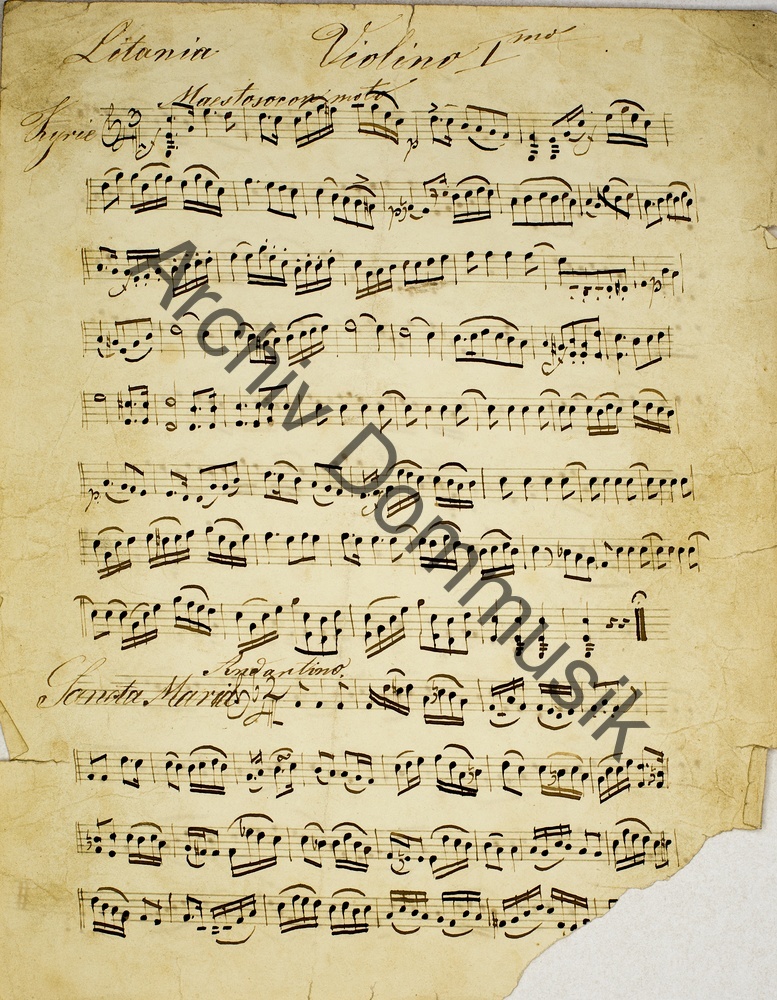 Litania Violino I mo
Maestoso con moto
Kyrie
f p f
p
f p
f
p f
Andantino.
Sancta Maria
Archiv Dommusik